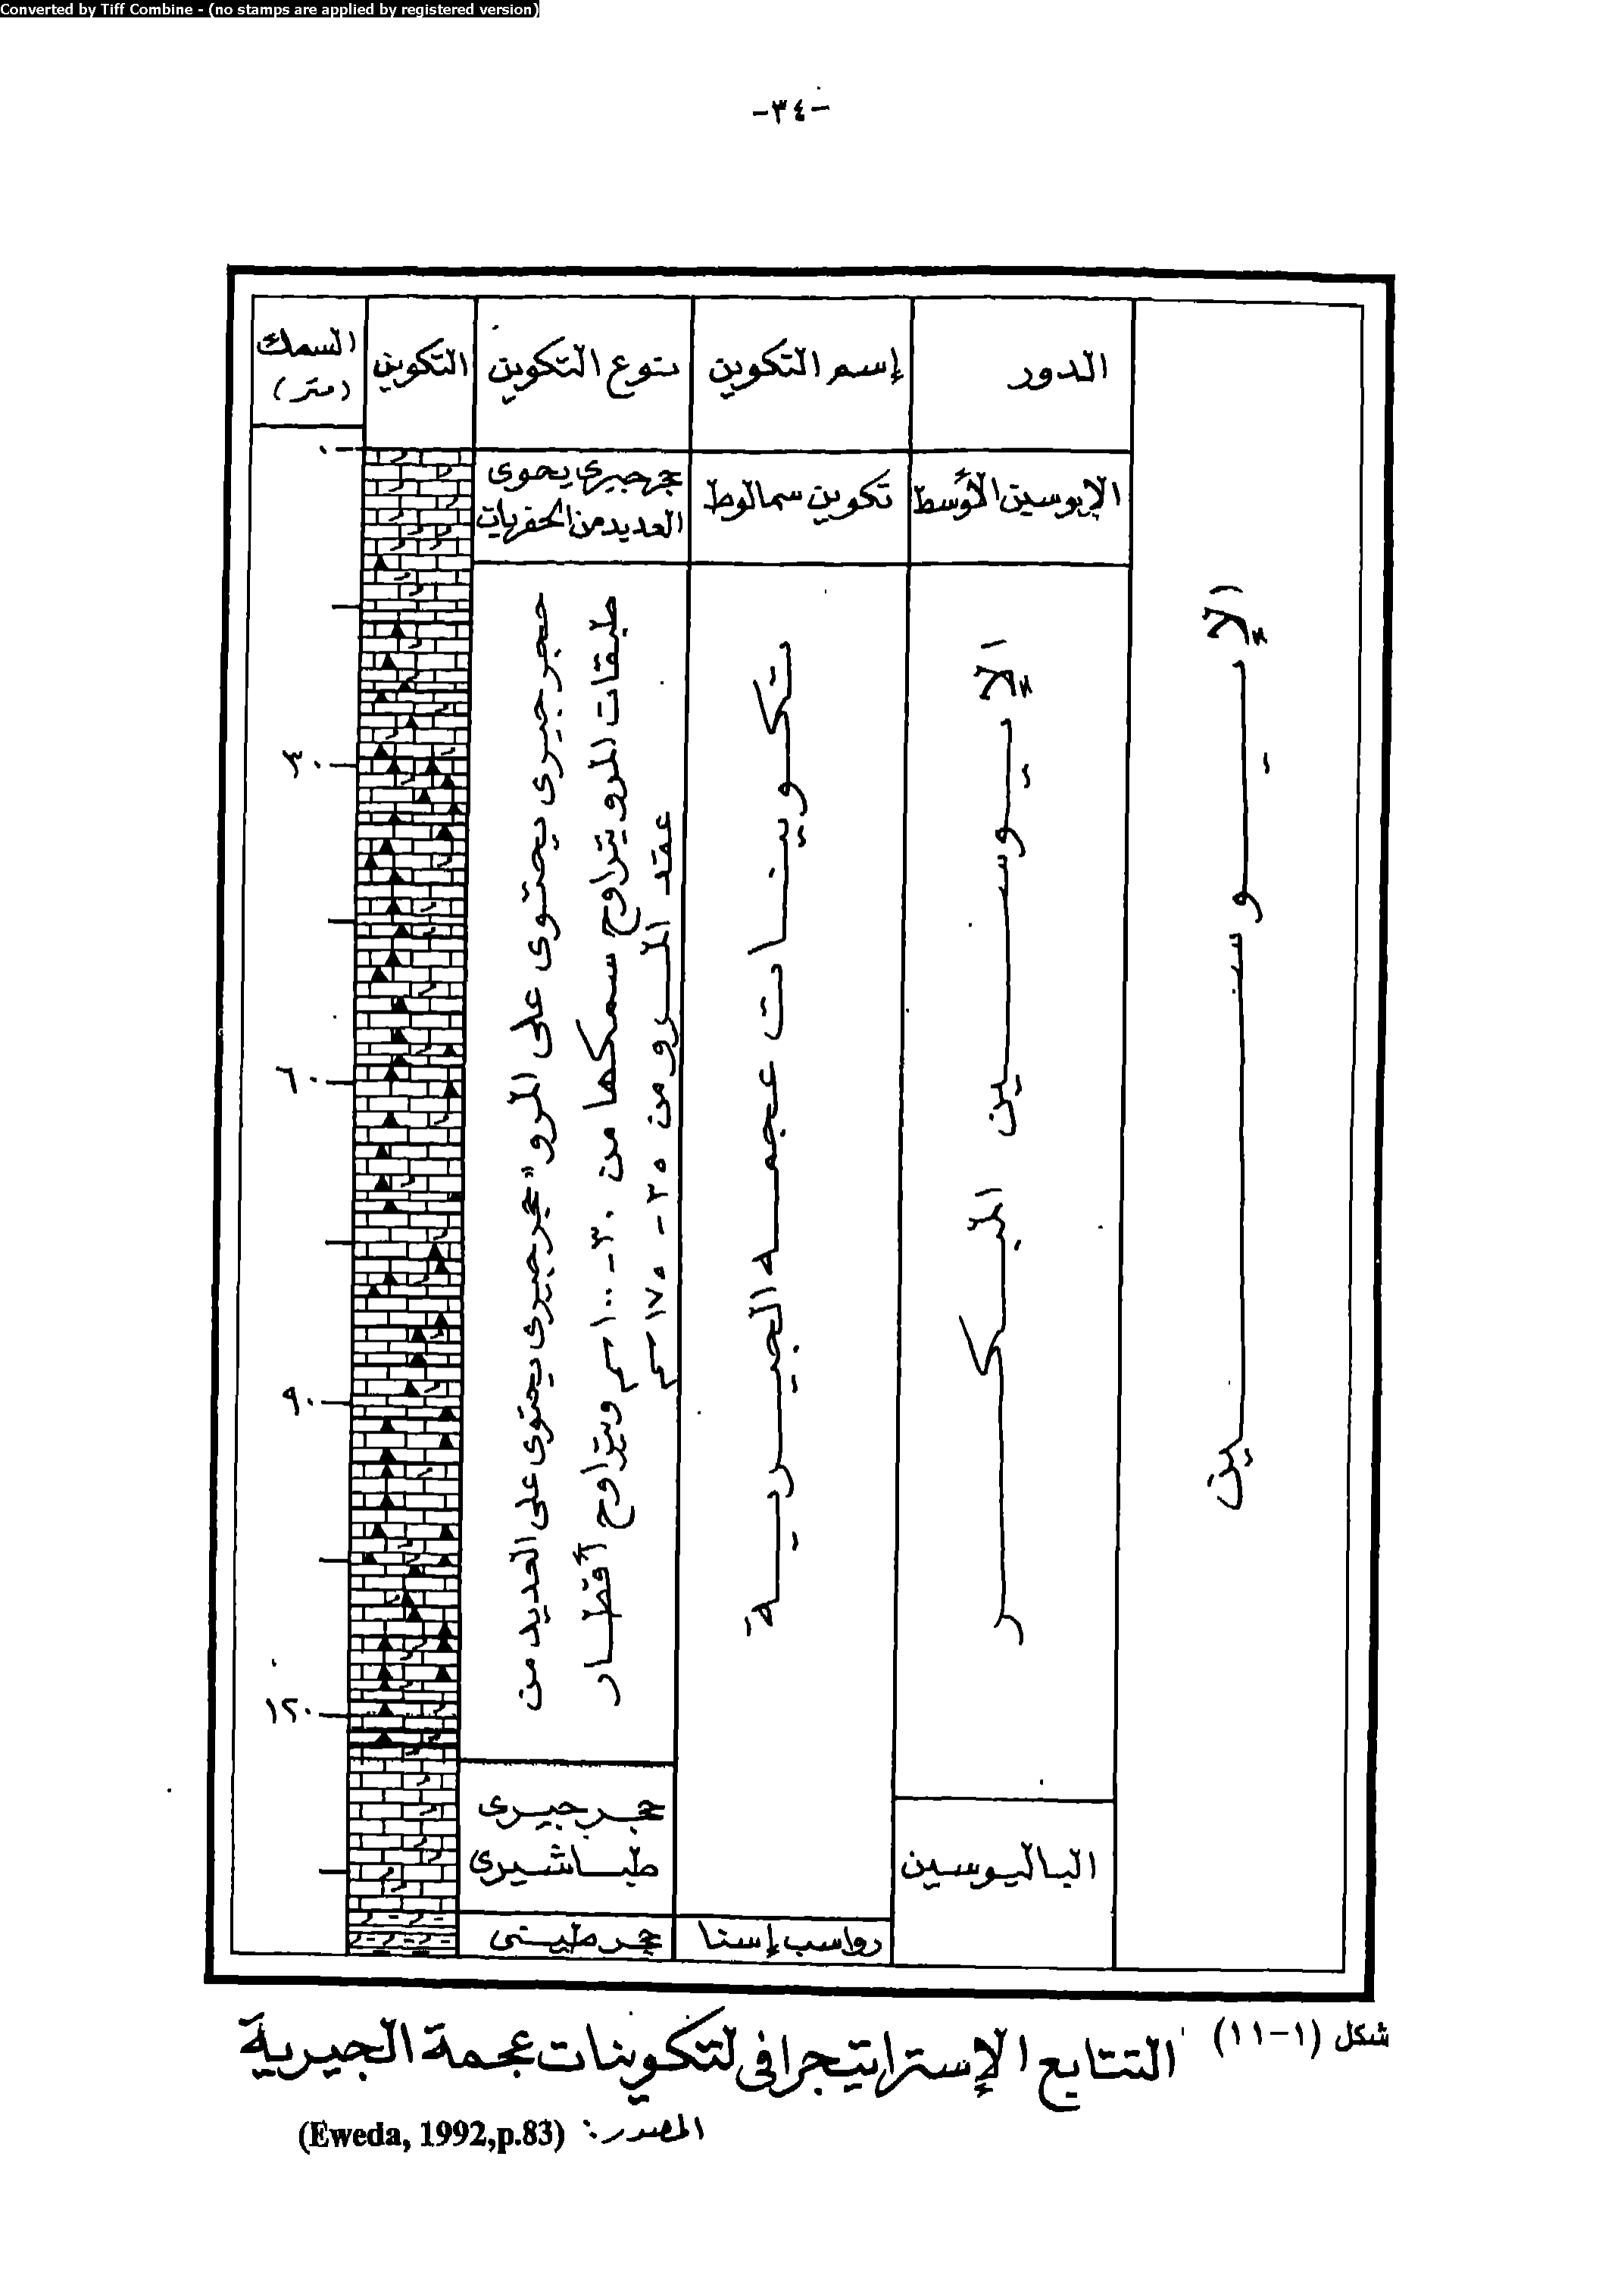 Converted by Tiff Combine - (no stamps are applied by registered version)
-٣٤-
الدور
إسم التكوين
نوع التكوين
التكوين
السمك
(متر)
الإيوسين
الإيوسين الأوسط
تكوين سمالوط
حجر جيرى يحوى
العديد من الحفريات
الإيوسين المبكر
تكوينات عجمه الجيرية
حجر جيرى يحتوى على المرو "حجر جيرى يحتوى على العديد من
طبقات المرو يتراوح سمكها من ٣٠-١٠٠ سم ويتراوح أقطار
عقد المرو من ٢٥-١٧٥ سم
حجر جيرى
طباشيرى
الباليوسين
رواسب إسنا
حجر طينى
٠
٦٠
٩٠
١٢٠
شكل (١-١١) التتابع الإستراتيجرافى لتكوينات عجمة الجيرية
المصدر: (Eweda, 1992,p.83)